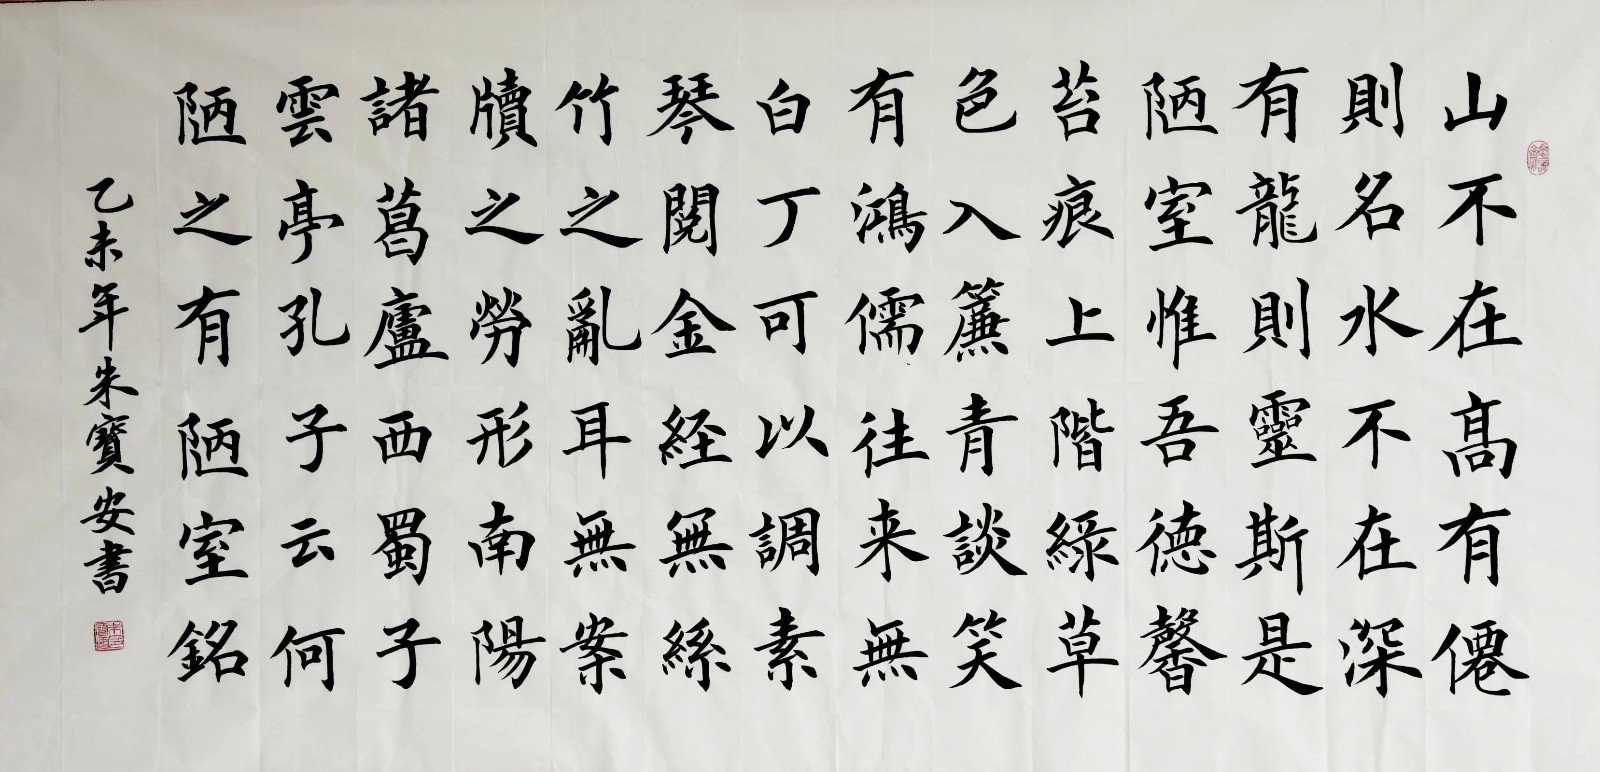 山不在高有僊
則名水不在深
有龍則靈斯是
陋室惟吾德馨
苔痕上階綠草
色入簾青談笑
有鴻儒往来無
白丁可以調素
琴閱金経無絲
竹之亂耳無案
牘之勞形南陽
諸葛廬西蜀子
雲亭孔子云何
陋之有陋室銘
乙未年朱寶安書